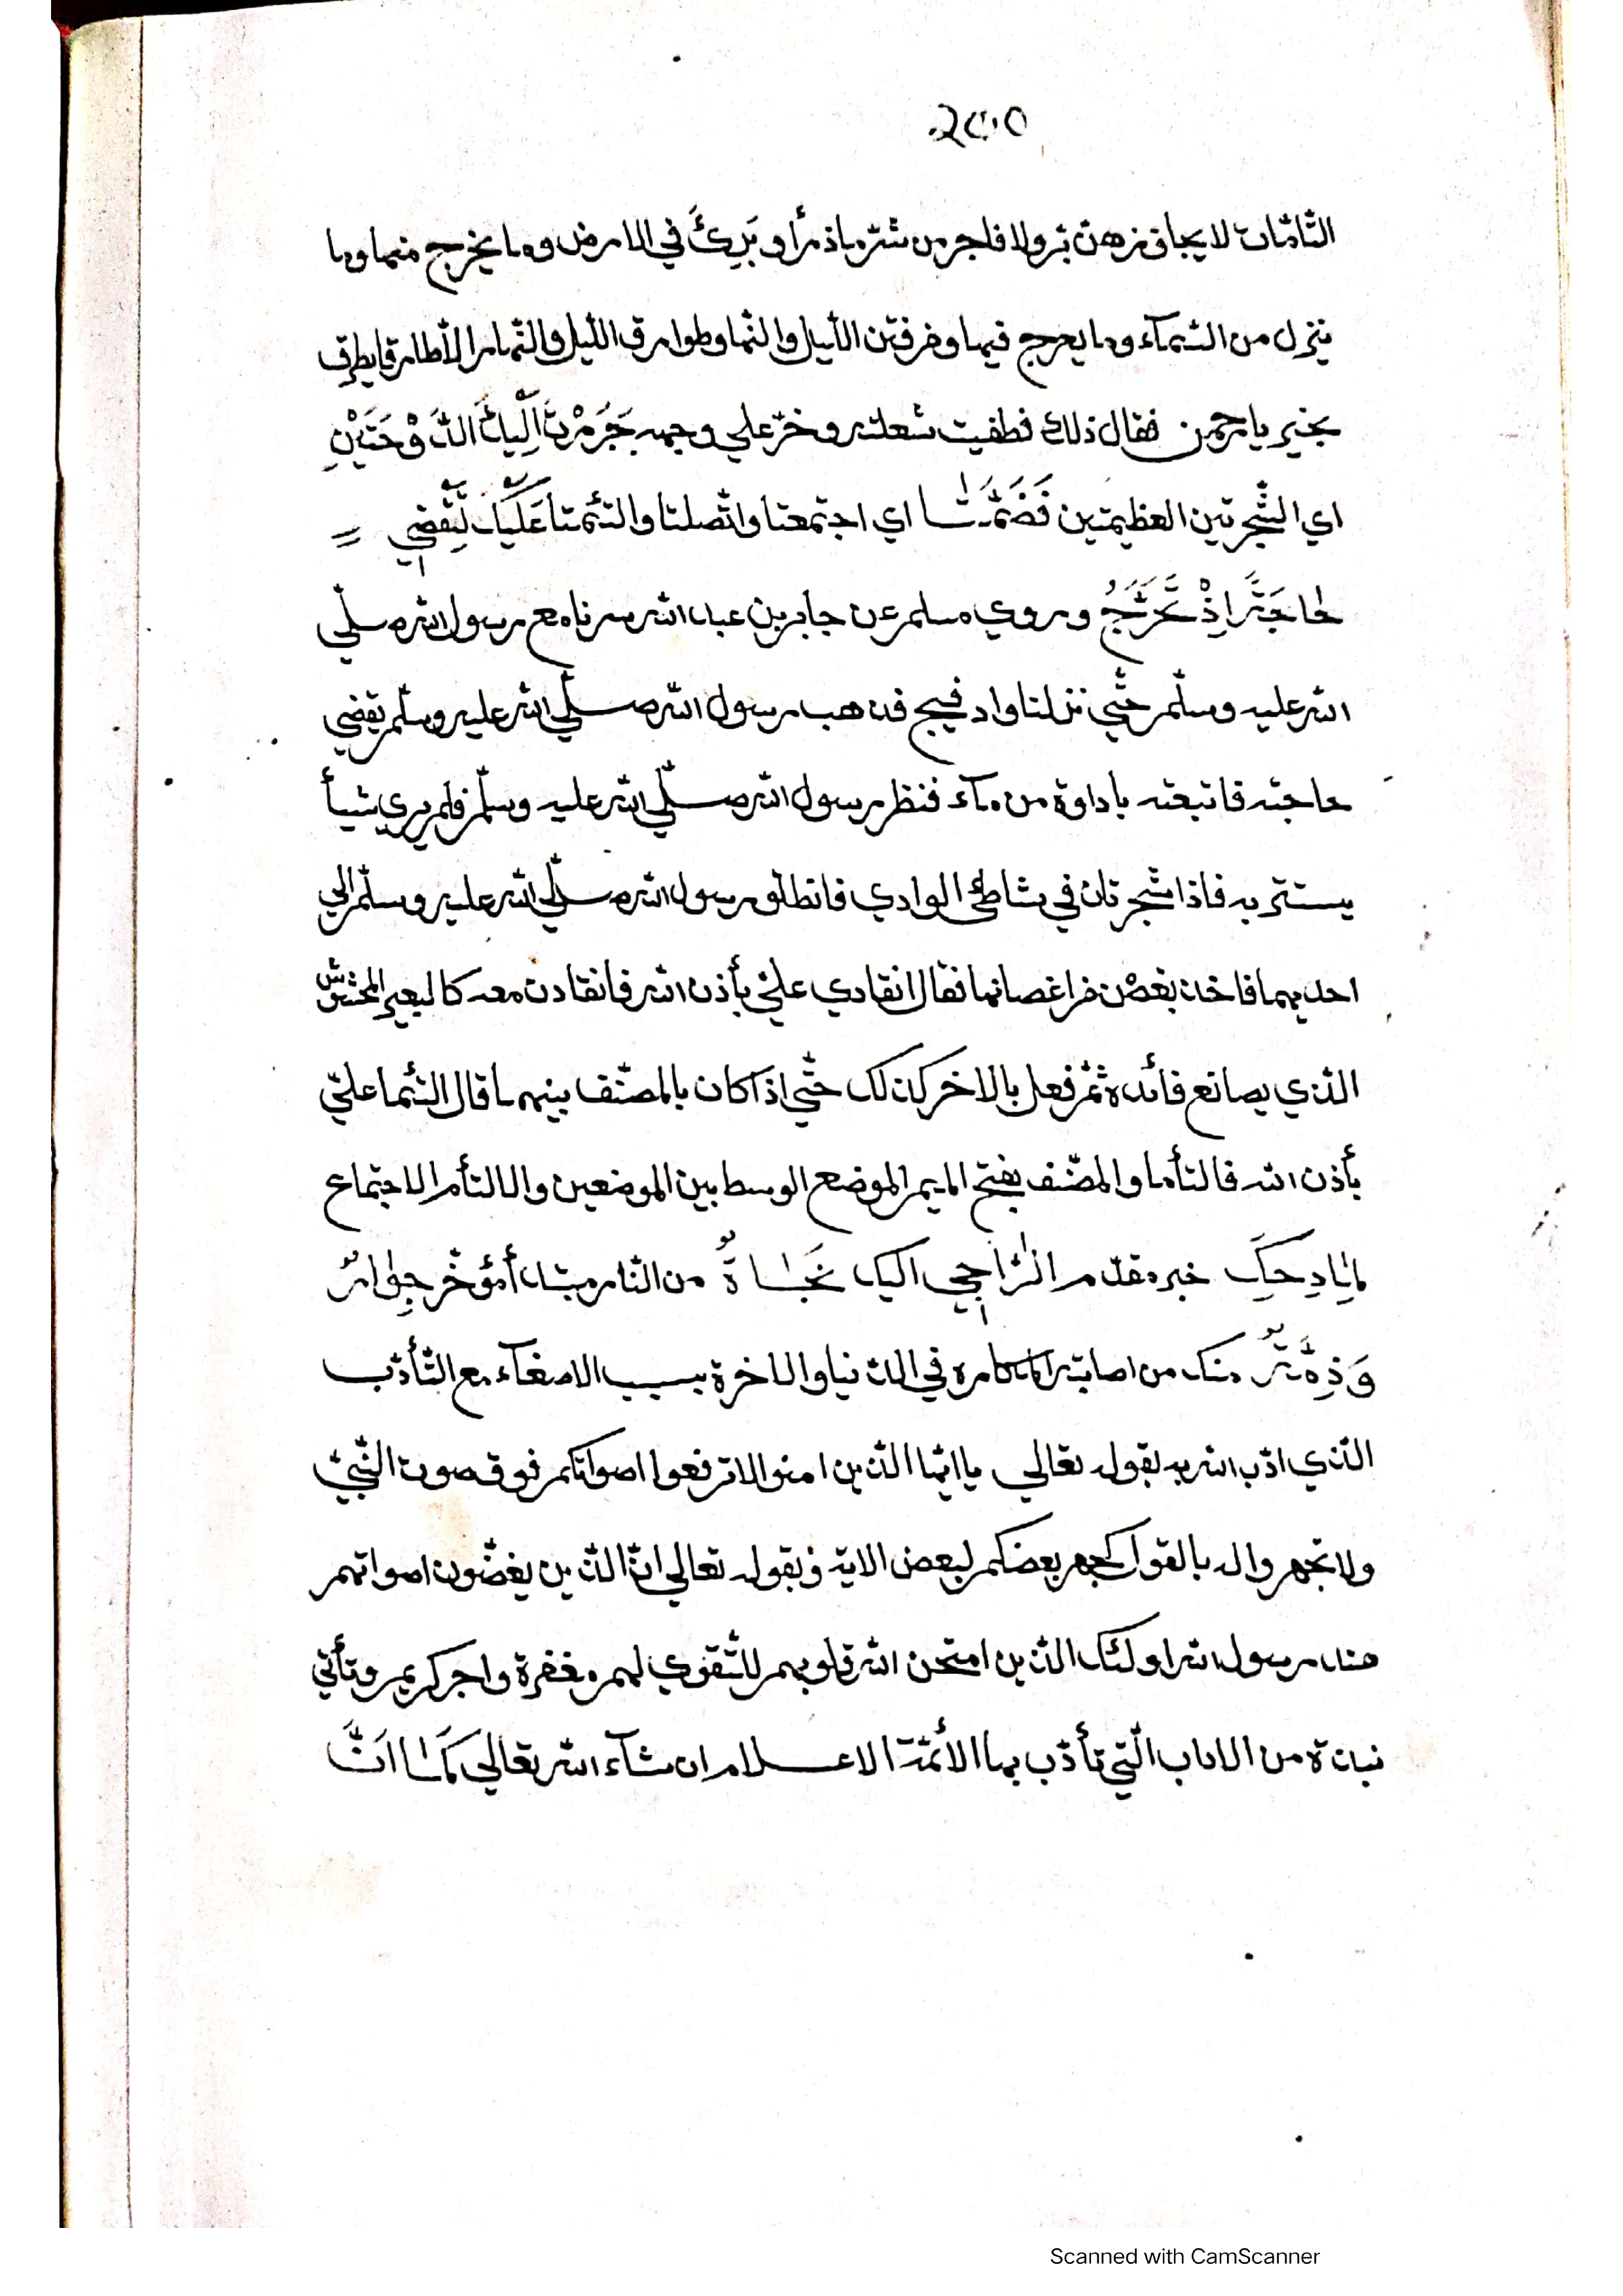 ٢٥٥
التّامّات لا يجاوزهن برّ ولا فاجر من شرّ ماذرأ وبَرِئَ في الارض وما يخرج منها وما
ينزل من السّمآء وما يعرج فيها وفرفتن اللّيل والنّها وطوارق اللّيل والنّهار الّاطارقا يطرق
بخير يارحمن فقال ذلك فطفيت شعلته وخرّ علي وجهه جَرَرْتَ اِلَيْكَ الدَّوْحَتَيْنِ
اي الشّجرتين العظيمتين فَضَمَّتَا اي اجتمعتا واتّصلتا والتئمتا عَلَيْكَ لِتَقْضِي
حَاجَةً اِذْ تَخْرُجُ وروي مسلم عن جابر بن عبد الله سرنا مع رسول الله صلّي
الله عليه وسلّم حتّي نزلنا واد فيج فذهب رسول الله صلّي الله عليه وسلّم يقضي
حاجته فاتبعته بأداوة من مآء فنظر رسول الله صلّي الله عليه وسلّم فلم يري شيأ
يستتر به فاذا شجرتان في شاطئ الوادي فانطلق رسول الله صلّي الله عليه وسلّم الي
احديهما فاخذ بغصن من اغصانها فقال انقادي عليّ بأذن الله فانقادت معه كالبعير المخشش
الّذي يصانع قائده ثمّ فعل بالاخر كذلك حتّي اذا كان بالمصنّف بينهما قال التئما عليّ
بأذن الله فالتأما والمصنّف بفتح الميم الموضع الوسط بين الموضعين والالتأم الاجتماع
لِمَادِحِكَ خبر مقدّم الرَّاجِي اليك نَجَاةٌ من النّار مبتدأ مؤخّر جِوَارٌ
وَذِمَّةٌ منك من اصابة المكاره في الدّنيا والاخرة بسبب الاصغآء مع التّأدّب
الّذي ادّب الله به بقوله تعالي يا ايّها الّذين امنوا لا ترفعوا اصواتكم فوق صوت النّبيّ
ولا تجهروا له بالقول كجهر بعضكم لبعض الاية وبقوله تعالي انّ الّذين يغضّون اصواتهم
عند رسول الله اولئك الّذين امتحن الله قلوبهم للتّقوي لهم مغفرة واجر كريم وتأتي
نبذة من الاداب الّتي تأدّب بها الأئمّة الاعلام ان شآء الله تعالي كَمَا اَنَّ
Scanned with CamScanner